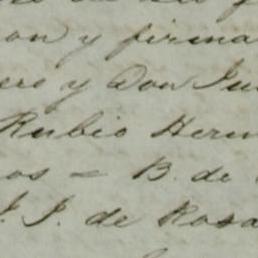 on y firma
ero y Don Ju
Rubio Herm
os = B. de
J. J. de Rosa